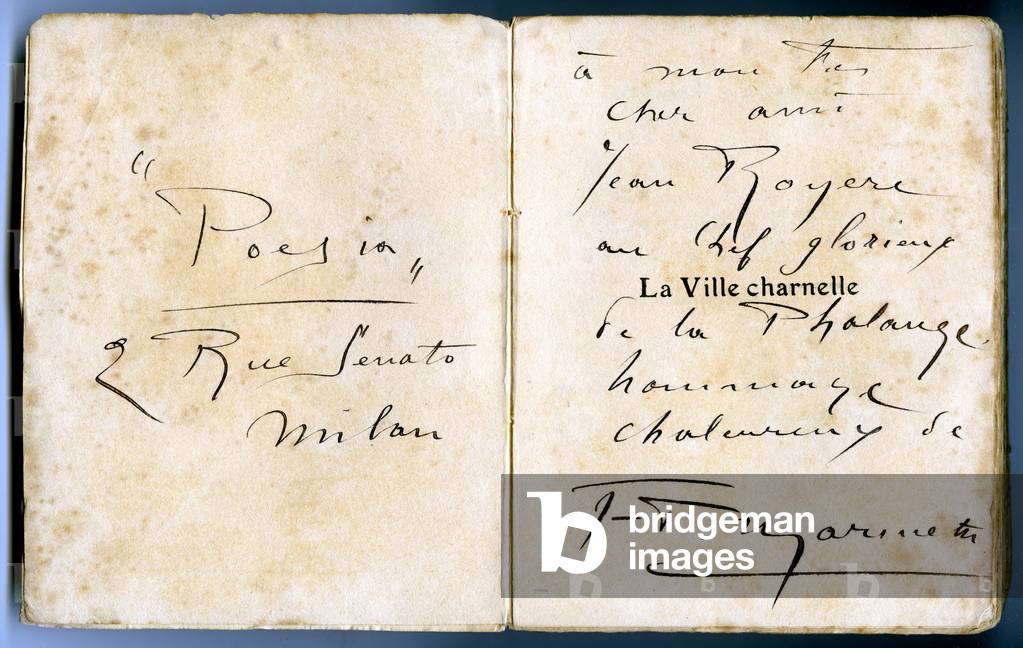 "Poesia"
2 Rue Senato
Milan
à mon très
cher ami
Jean Royere
au Chef glorieux
La Ville charnelle
de la Phalange
hommage
chaleureux de
F. T. Marinetti
bridgeman
images